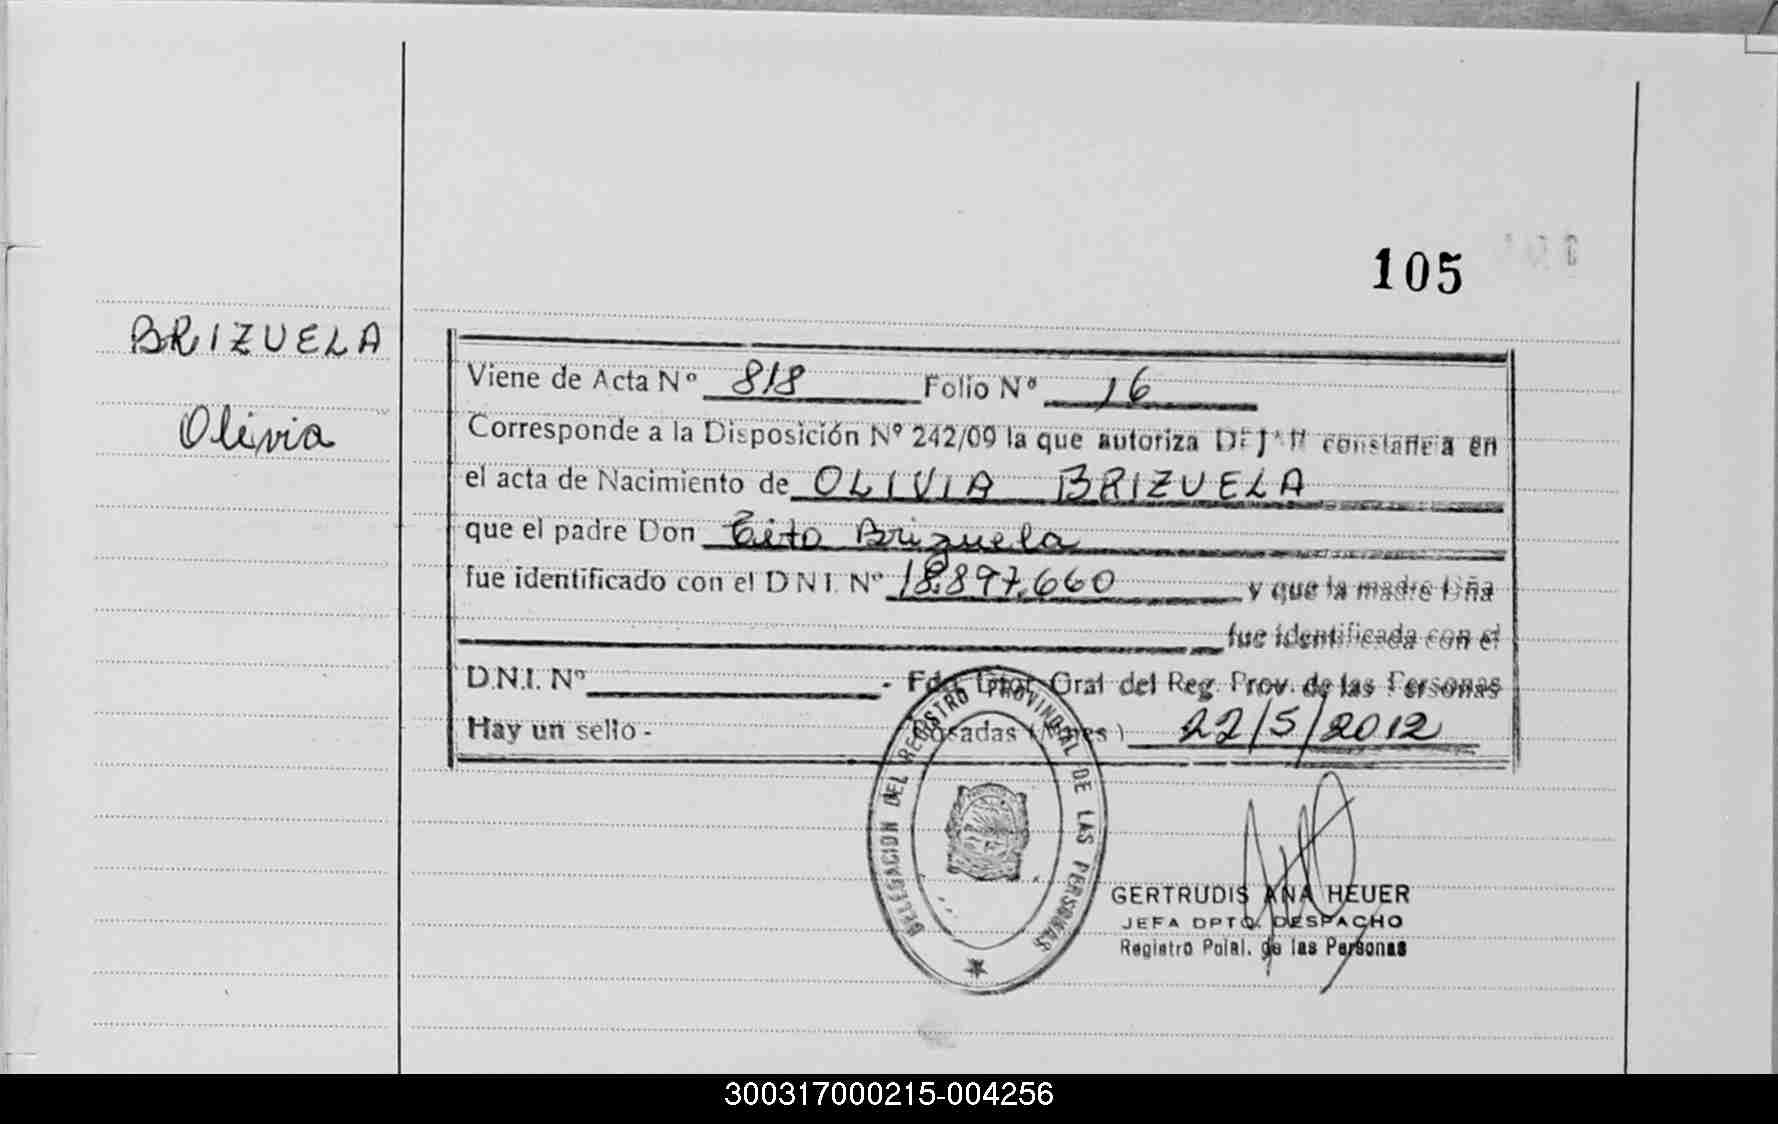 105
BRIZUELA
Olivia
Viene de Acta Nº 818 Folio Nº 16
Corresponde a la Disposición Nº 242/09 la que autoriza DEJAR constancia en
el acta de Nacimiento de OLIVIA BRIZUELA
que el padre Don Tito Brizuela
fue identificado con el D N I. Nº 18.897.660 y que la madre Dña
fue identificada con el
D.N.I. Nº - Fdo. Gral del Reg. Prov. de las Personas
Hay un sello - Posadas (Mnes) 22/5/2012
DELEGACION DEL REGISTRO PROVINCIAL DE LAS PERSONAS
GERTRUDIS ANA HEUER
JEFA DPTO. DESPACHO
Registro Polal. de las Personas
300317000215-004256